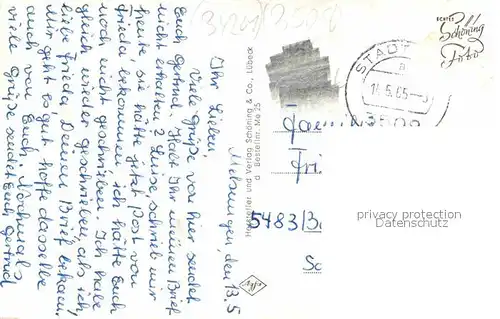 (34201) (3508
Melsungen, den 13.5
Ihr Lieben,
Viele grüße von hier sendet
Euch gertrud. Habt Ihr meinen Brief
nicht erhalten? Luise, schrieb mir
heute, sie hätte jetzt Post von
Frieda, bekommen, ich hätte Euch
noch nicht geschrieben. Ich habe
gleich wieder geschrieben, als ich,
liebe Frieda Deinen Brief bekam,
Mir geht es gut hoffe dasselbe
auch von Euch. Nochmals
viele grüße sendet Euch, gertrud
Hersteller und Verlag Schöning & Co., Lübeck
Bestellnr. Me 25
ECHTES
Schöning
Foto
STADT
a
14.5.65
3508
Famili
Fri
5483/B
privacy protection
Datenschutz